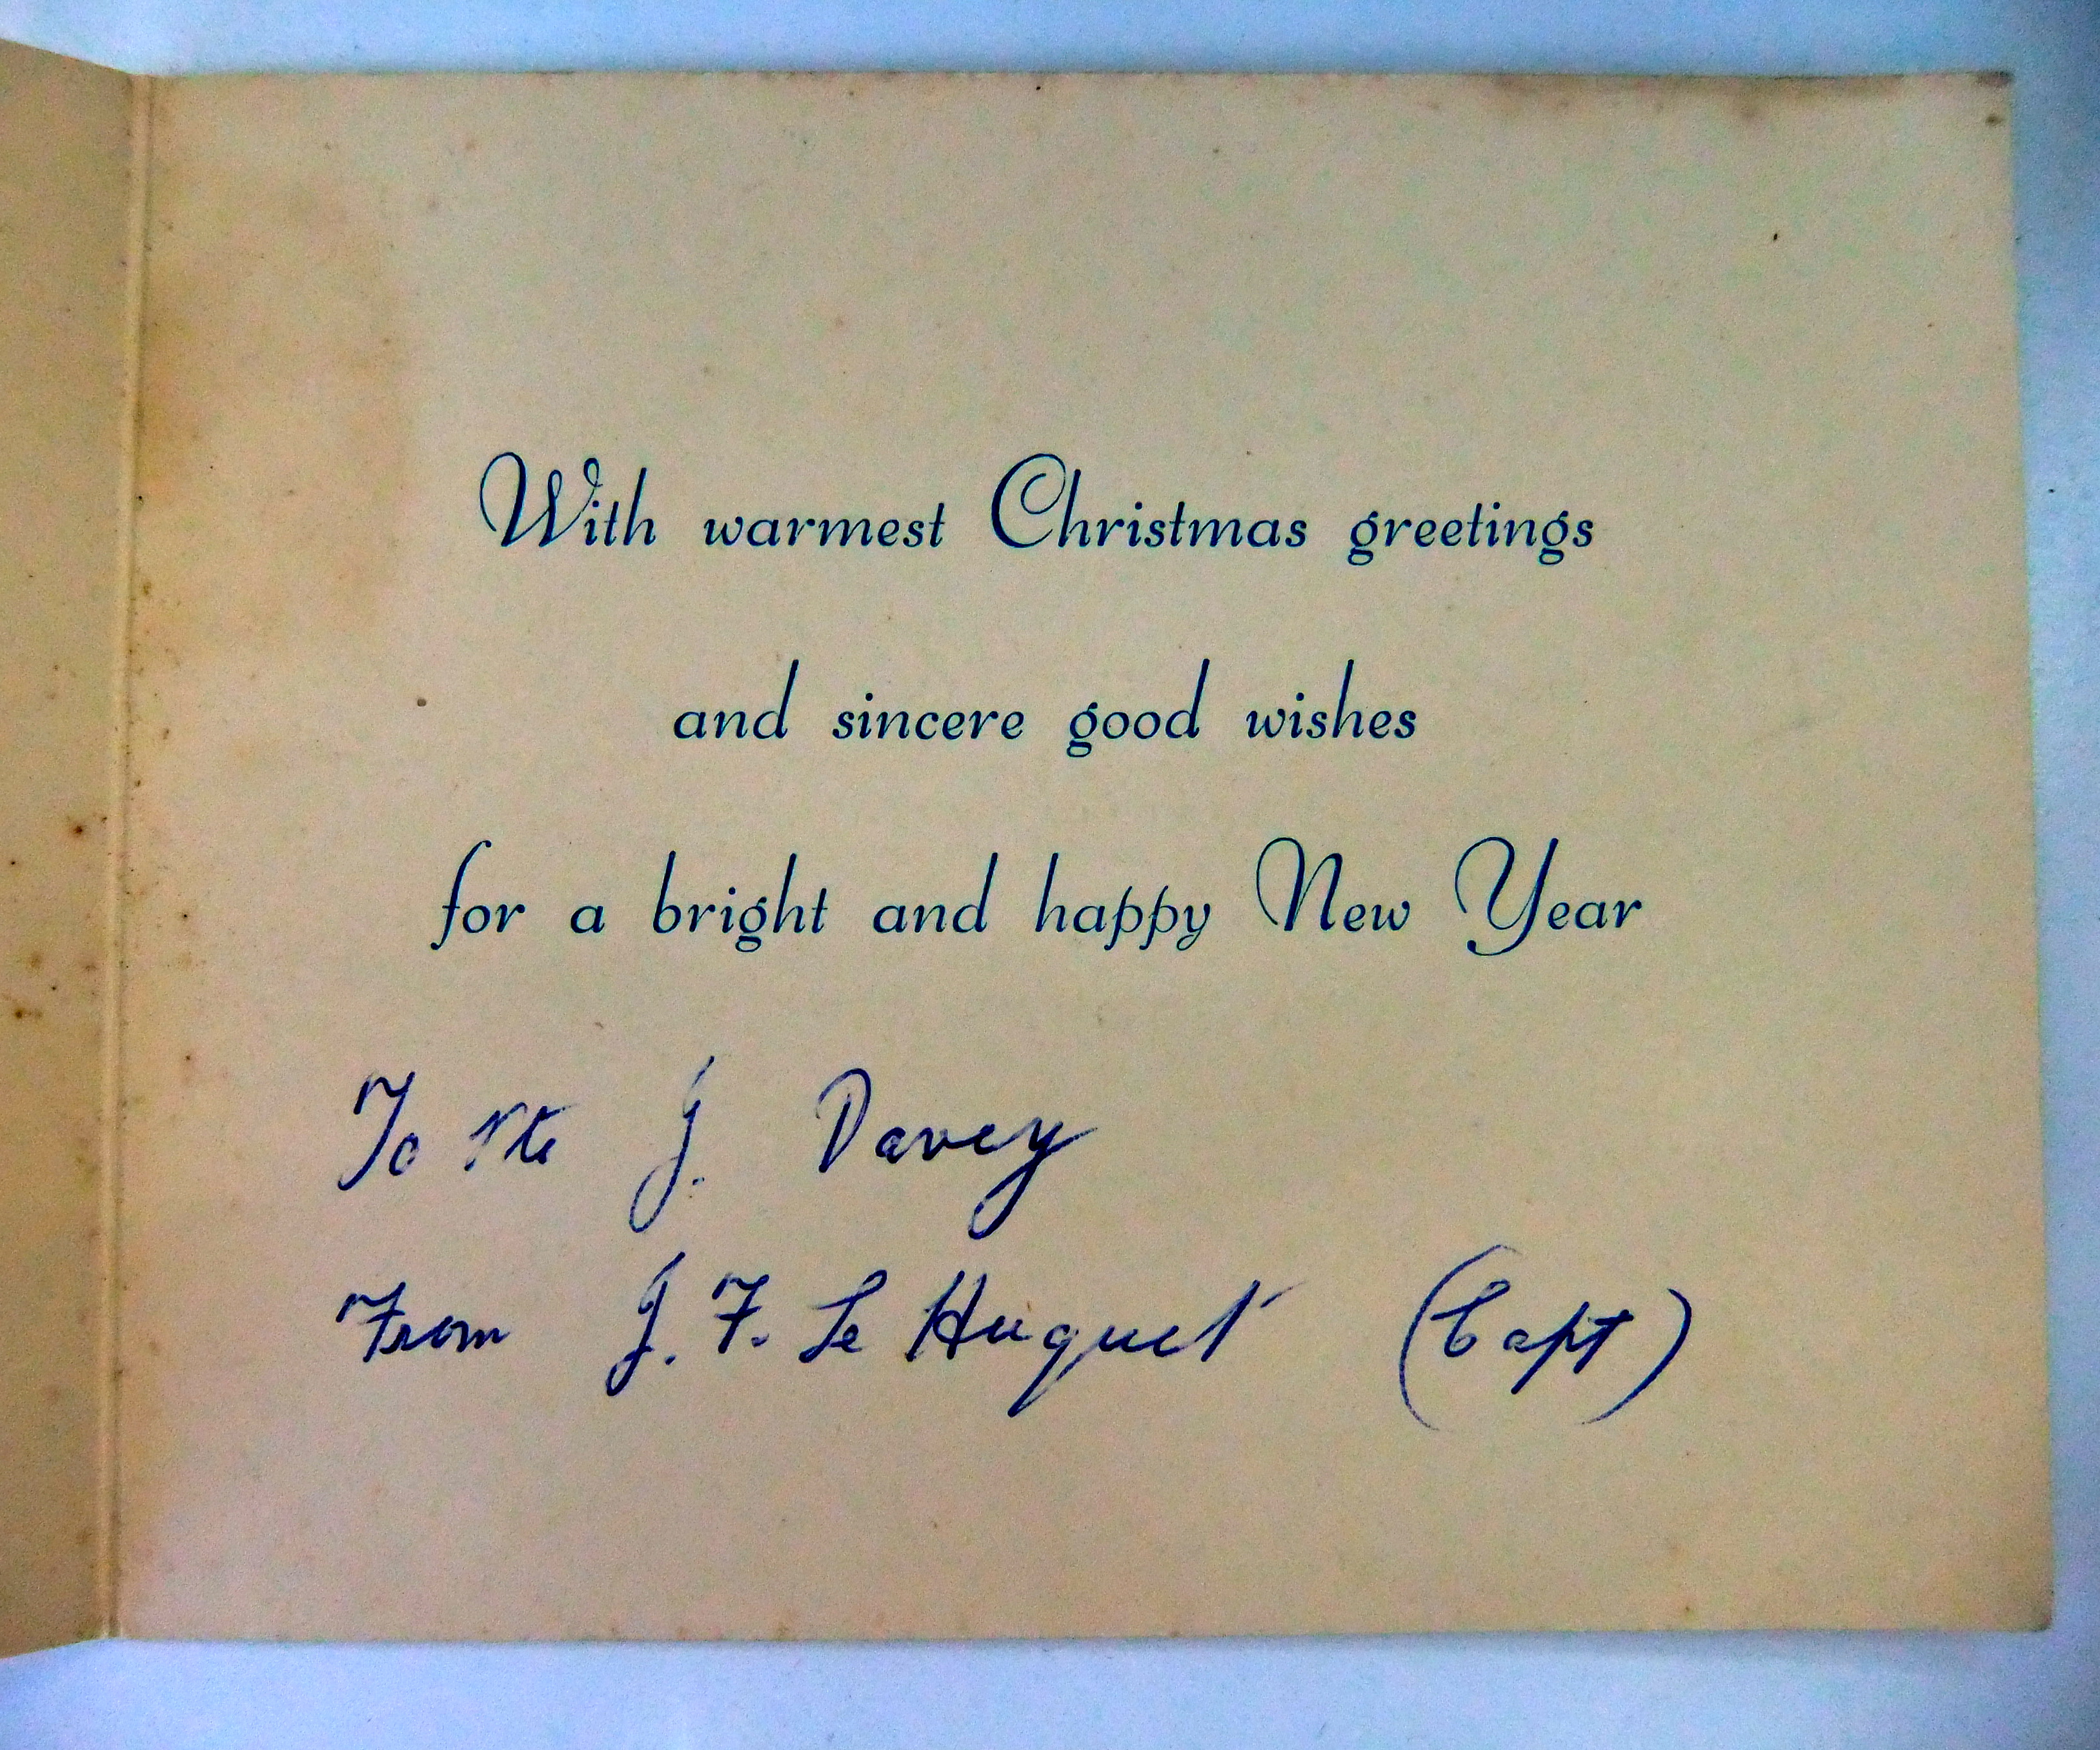 With warmest Christmas greetings
and sincere good wishes
for a bright and happy New Year
To Pte J. Davey
From J. F. Le Huquet (Capt)